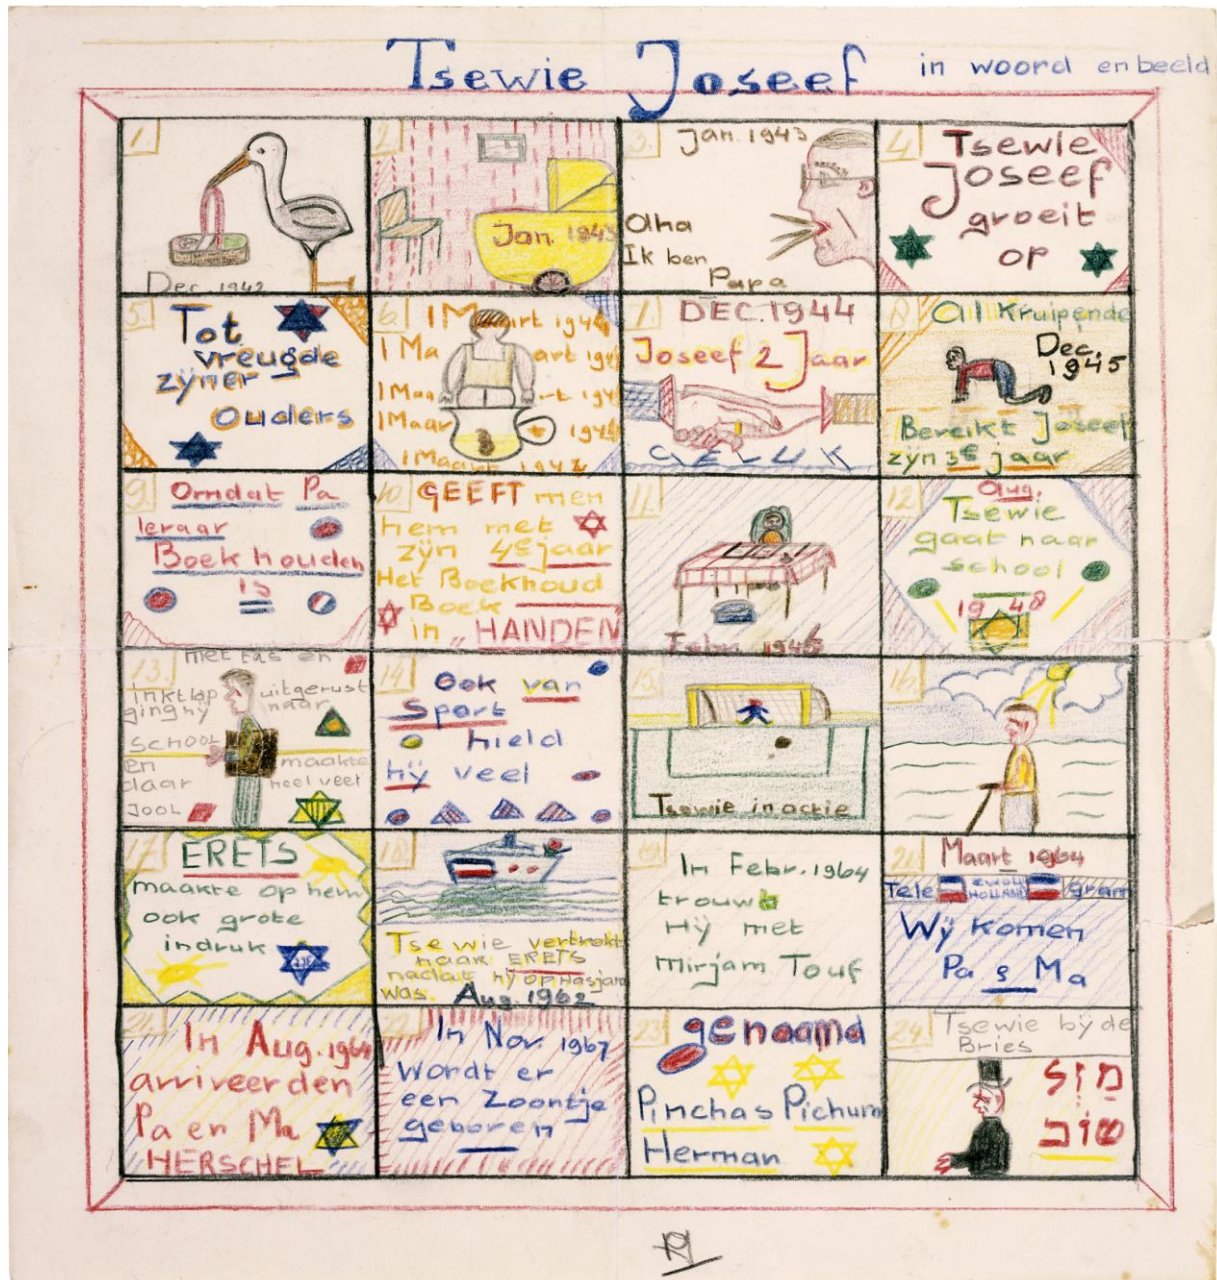 Tsewie Joseef in woord en beeld
1.
Dec. 1942
2.
Jan. 1943
3.
Jan. 1943
Aha
Ik ben
Papa
4.
Tsewie
Joseef
groeit
op
5.
Tot
vreugde
zijner
Ouders
6.
1 Maart 1944
1 Maart 194
1 Maa rt 194
1 Maar 1944
1 Maart 194
7.
DEC. 1944
Joseef 2 Jaar
GELUK
8.
Al Kruipende
Dec.
1945
Bereikt Joseef
zijn 3e jaar
9.
Omdat Pa
leraar
Boekhouden
is
10.
GEEFT men
hem met
zijn 4e jaar
Het Boekhoud
Boek
in "HANDEN
11.
Febr. 1946
12.
Aug.
Tsewie
gaat naar
school
1948
13.
met tas en
inktlap uitgerust
ging hij naar
SCHOOL
en maakte
daar heel veel
JOOL
14.
Ook van
Sport
hield
hij veel
15.
Tsewie in actie
16.
17.
ERETS
maakte op hem
ook grote
indruk
18.
Tsewie vertrekt
naar ERETS
nadat hij op Hasjara
was. Aug. 1962
19.
In Febr. 1964
trouwt
Hij met
Mirjam Touf
20.
Maart 1964
Tele gram
HOLLAND
Wij komen
Pa & Ma
21.
In Aug. 1964
arriveerden
Pa en Ma
HERSCHEL
22.
In Nov. 1967
Wordt er
een Zoontje
geboren
23.
genaamd
Pinchas Pichum
Herman
24.
Tsewie bij de
Bries
מזל
טוב